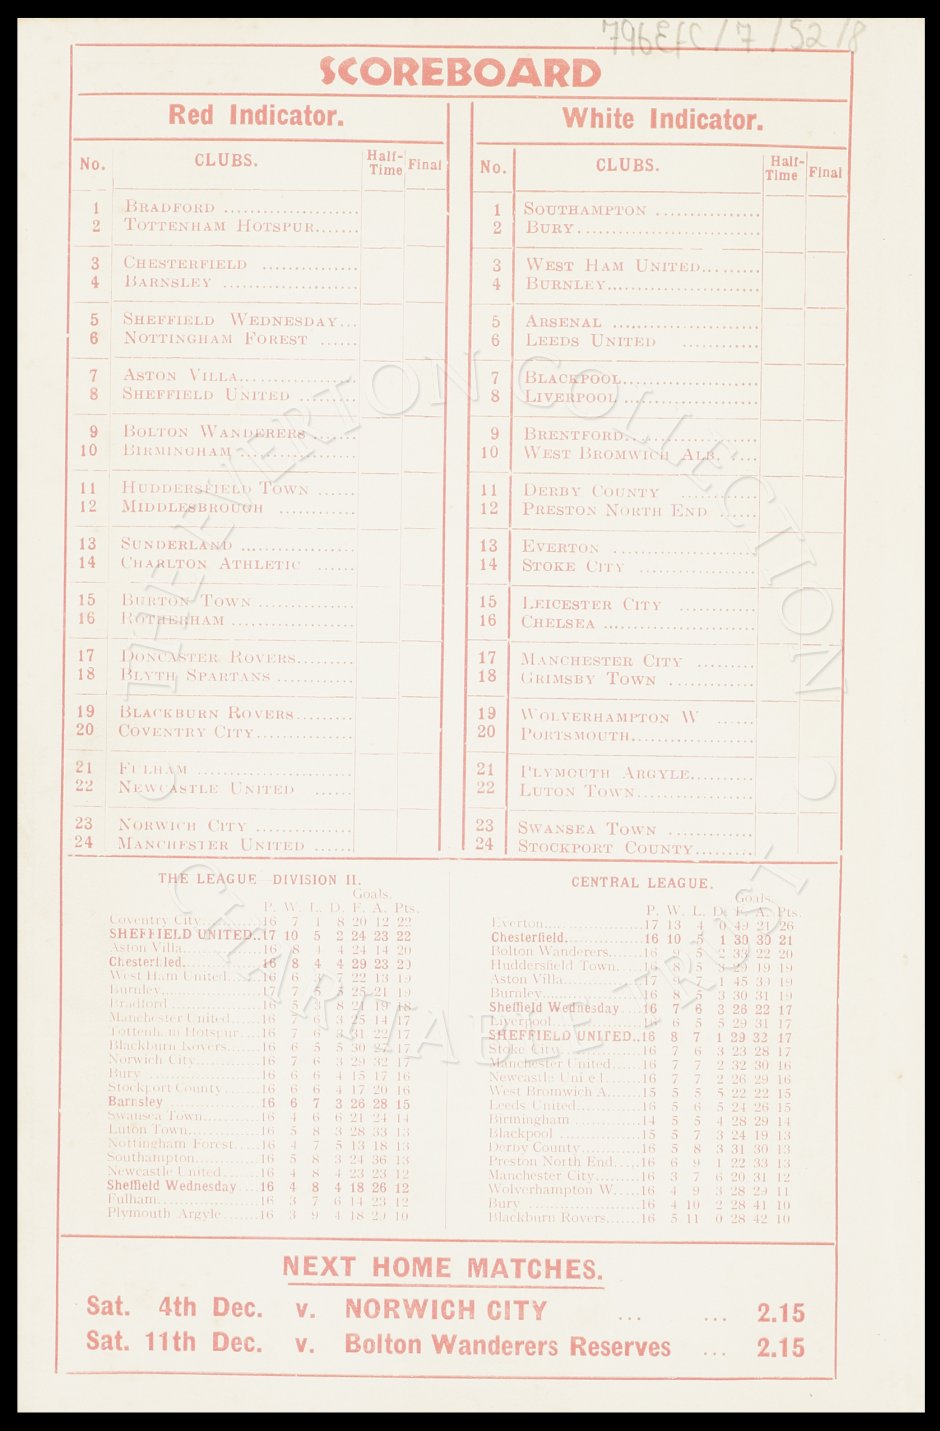 796EFC/7/52/8
SCOREBOARD
Red Indicator.
No. CLUBS. Half-Time Final
1 BRADFORD
2 TOTTENHAM HOTSPUR
3 CHESTERFIELD
4 BARNSLEY
5 SHEFFIELD WEDNESDAY
6 NOTTINGHAM FOREST
7 ASTON VILLA
8 SHEFFIELD UNITED
9 BOLTON WANDERERS
10 BIRMINGHAM
11 HUDDERSFIELD TOWN
12 MIDDLESBROUGH
13 SUNDERLAND
14 CHARLTON ATHLETIC
15 BURTON TOWN
16 ROTHERHAM
17 DONCASTER ROVERS
18 BLYTH SPARTANS
19 BLACKBURN ROVERS
20 COVENTRY CITY
21 FULHAM
22 NEWCASTLE UNITED
23 NORWICH CITY
24 MANCHESTER UNITED
White Indicator.
No. CLUBS. Half-Time Final
1 SOUTHAMPTON
2 BURY
3 WEST HAM UNITED
4 BURNLEY
5 ARSENAL
6 LEEDS UNITED
7 BLACKPOOL
8 LIVERPOOL
9 BRENTFORD
10 WEST BROMWICH ALB.
11 DERBY COUNTY
12 PRESTON NORTH END
13 EVERTON
14 STOKE CITY
15 LEICESTER CITY
16 CHELSEA
17 MANCHESTER CITY
18 GRIMSBY TOWN
19 WOLVERHAMPTON W
20 PORTSMOUTH
21 PLYMOUTH ARGYLE
22 LUTON TOWN
23 SWANSEA TOWN
24 STOCKPORT COUNTY
THE LEAGUE—DIVISION II.
Goals.
P. W. L. D. F. A. Pts.
Coventry City 16 7 1 8 20 12 22
SHEFFIELD UNITED..17 10 5 2 24 23 22
Aston Villa 16 8 4 4 24 14 20
Chesterfiled 16 8 4 4 29 23 20
West Ham United 16 6 3 7 22 13 19
Burnley 17 7 5 5 25 21 19
Bradford 16 5 3 8 21 19 18
Manchester United 16 7 6 3 25 14 17
Tottenham Hotspur 16 7 6 3 31 22 17
Blackburn Rovers 16 6 5 5 30 27 17
Norwich City 16 7 6 3 29 32 17
Bury 16 6 6 4 15 17 16
Stockport County 16 6 6 4 17 20 16
Barnsley 16 6 7 3 26 28 15
Swansea Town 16 4 6 6 21 24 14
Luton Town 16 5 8 3 28 33 13
Nottingham Forest 16 4 7 5 13 18 13
Southampton 16 5 8 3 24 36 13
Newcastle United 16 4 8 4 23 23 12
Sheffield Wednesday 16 4 8 4 18 26 12
Fulham 16 3 7 6 14 23 12
Plymouth Argyle 16 3 9 4 18 29 10
CENTRAL LEAGUE.
Goals.
P. W. L. D. F. A. Pts.
Everton 17 13 4 0 49 21 26
Chesterfield 16 10 5 1 30 30 21
Bolton Wanderers 16 9 5 2 33 22 20
Huddersfield Town 16 8 5 3 29 19 19
Aston Villa 17 9 7 1 45 39 19
Burnley 16 8 5 3 30 31 19
Sheffield Wednesday 16 7 6 3 26 22 17
Liverpool 16 6 5 5 29 31 17
SHEFFIELD UNITED..16 8 7 1 29 32 17
Stoke City 16 7 6 3 23 28 17
Manchester United 16 7 7 2 32 30 16
Newcastle United 16 7 7 2 26 29 16
West Bromwich A. 15 5 5 5 22 22 15
Leeds United 16 5 6 5 24 26 15
Birmingham 14 5 5 4 28 29 14
Blackpool 15 5 7 3 24 19 13
Derby County 16 5 8 3 31 30 13
Preston North End 16 6 9 1 22 33 13
Manchester City 16 3 7 6 20 31 12
Wolverhampton W. 16 4 9 3 28 29 11
Bury 16 4 10 2 28 41 10
Blackburn Rovers 16 5 11 0 28 42 10
NEXT HOME MATCHES.
Sat. 4th Dec. v. NORWICH CITY ... ... 2.15
Sat. 11th Dec. v. Bolton Wanderers Reserves ... 2.15
THE EVERTON COLLECTION
CHARITABLE TRUST